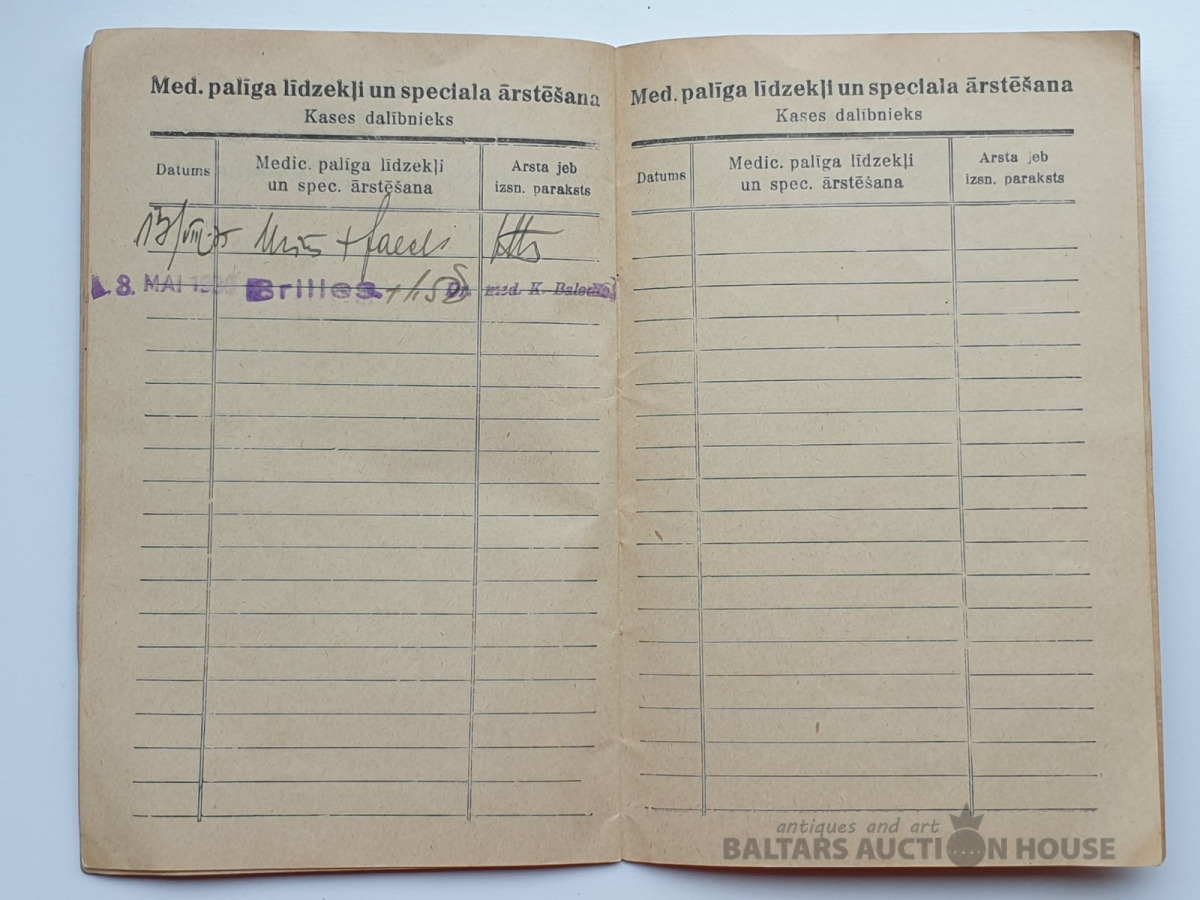 Med. palīga līdzekļi un speciala ārstēšana
Kases dalībnieks
Datums
Medic. palīga līdzekļi
un spec. ārstēšana
Arsta jeb
izsn. paraksts
+ faeces
8. MAI
Brilles
Dr. med. K.
Med. palīga līdzekļi un speciala ārstēšana
Kases dalībnieks
Datums
Medic. palīga līdzekļi
un spec. ārstēšana
Arsta jeb
izsn. paraksts
antiques and art
BALTARS AUCTION HOUSE